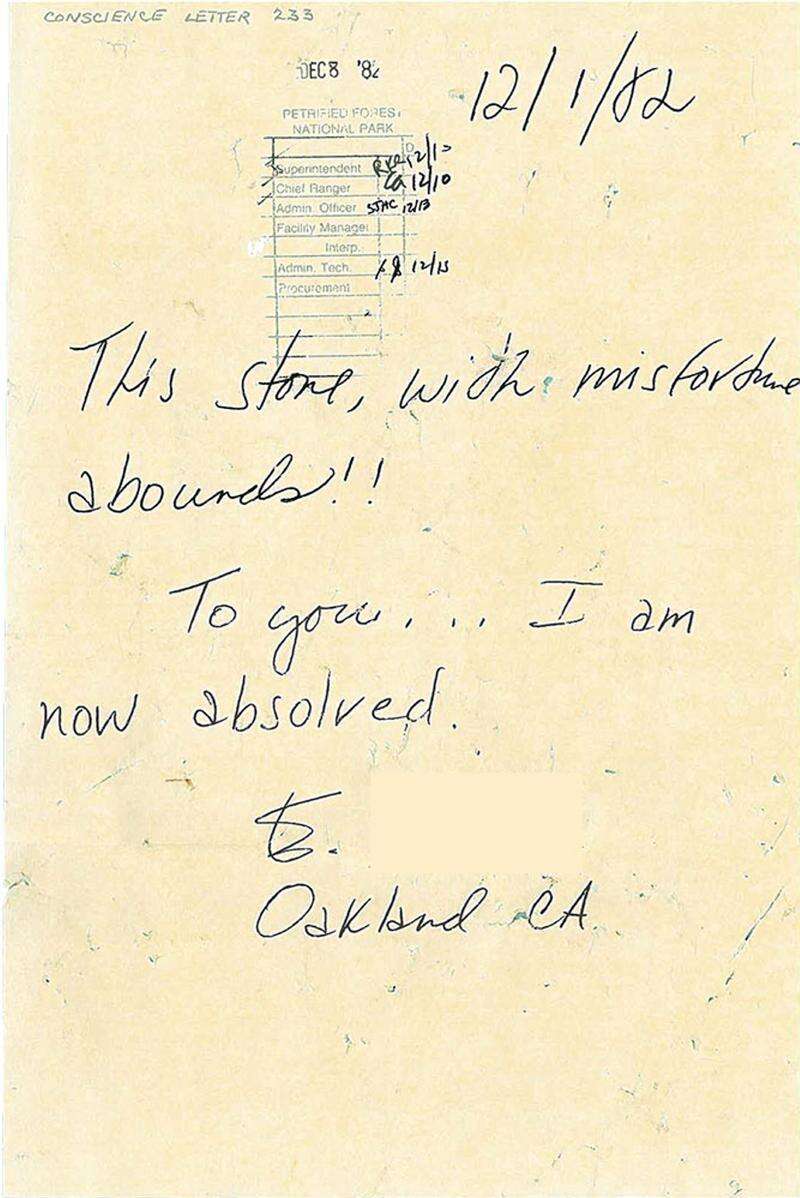 CONSCIENCE LETTER 233
DEC 8 '82
12/1/82
PETRIFIED FOREST
NATIONAL PARK
D
Superintendent 12/10
Chief Ranger 12/10
Admin. Officer SJHC 12/13
Facility Manager
Interp.
Admin. Tech. 12/15
Procurement
This stone, with misfortune
abounds!!
To you.... I am
now absolved.
Oakland CA